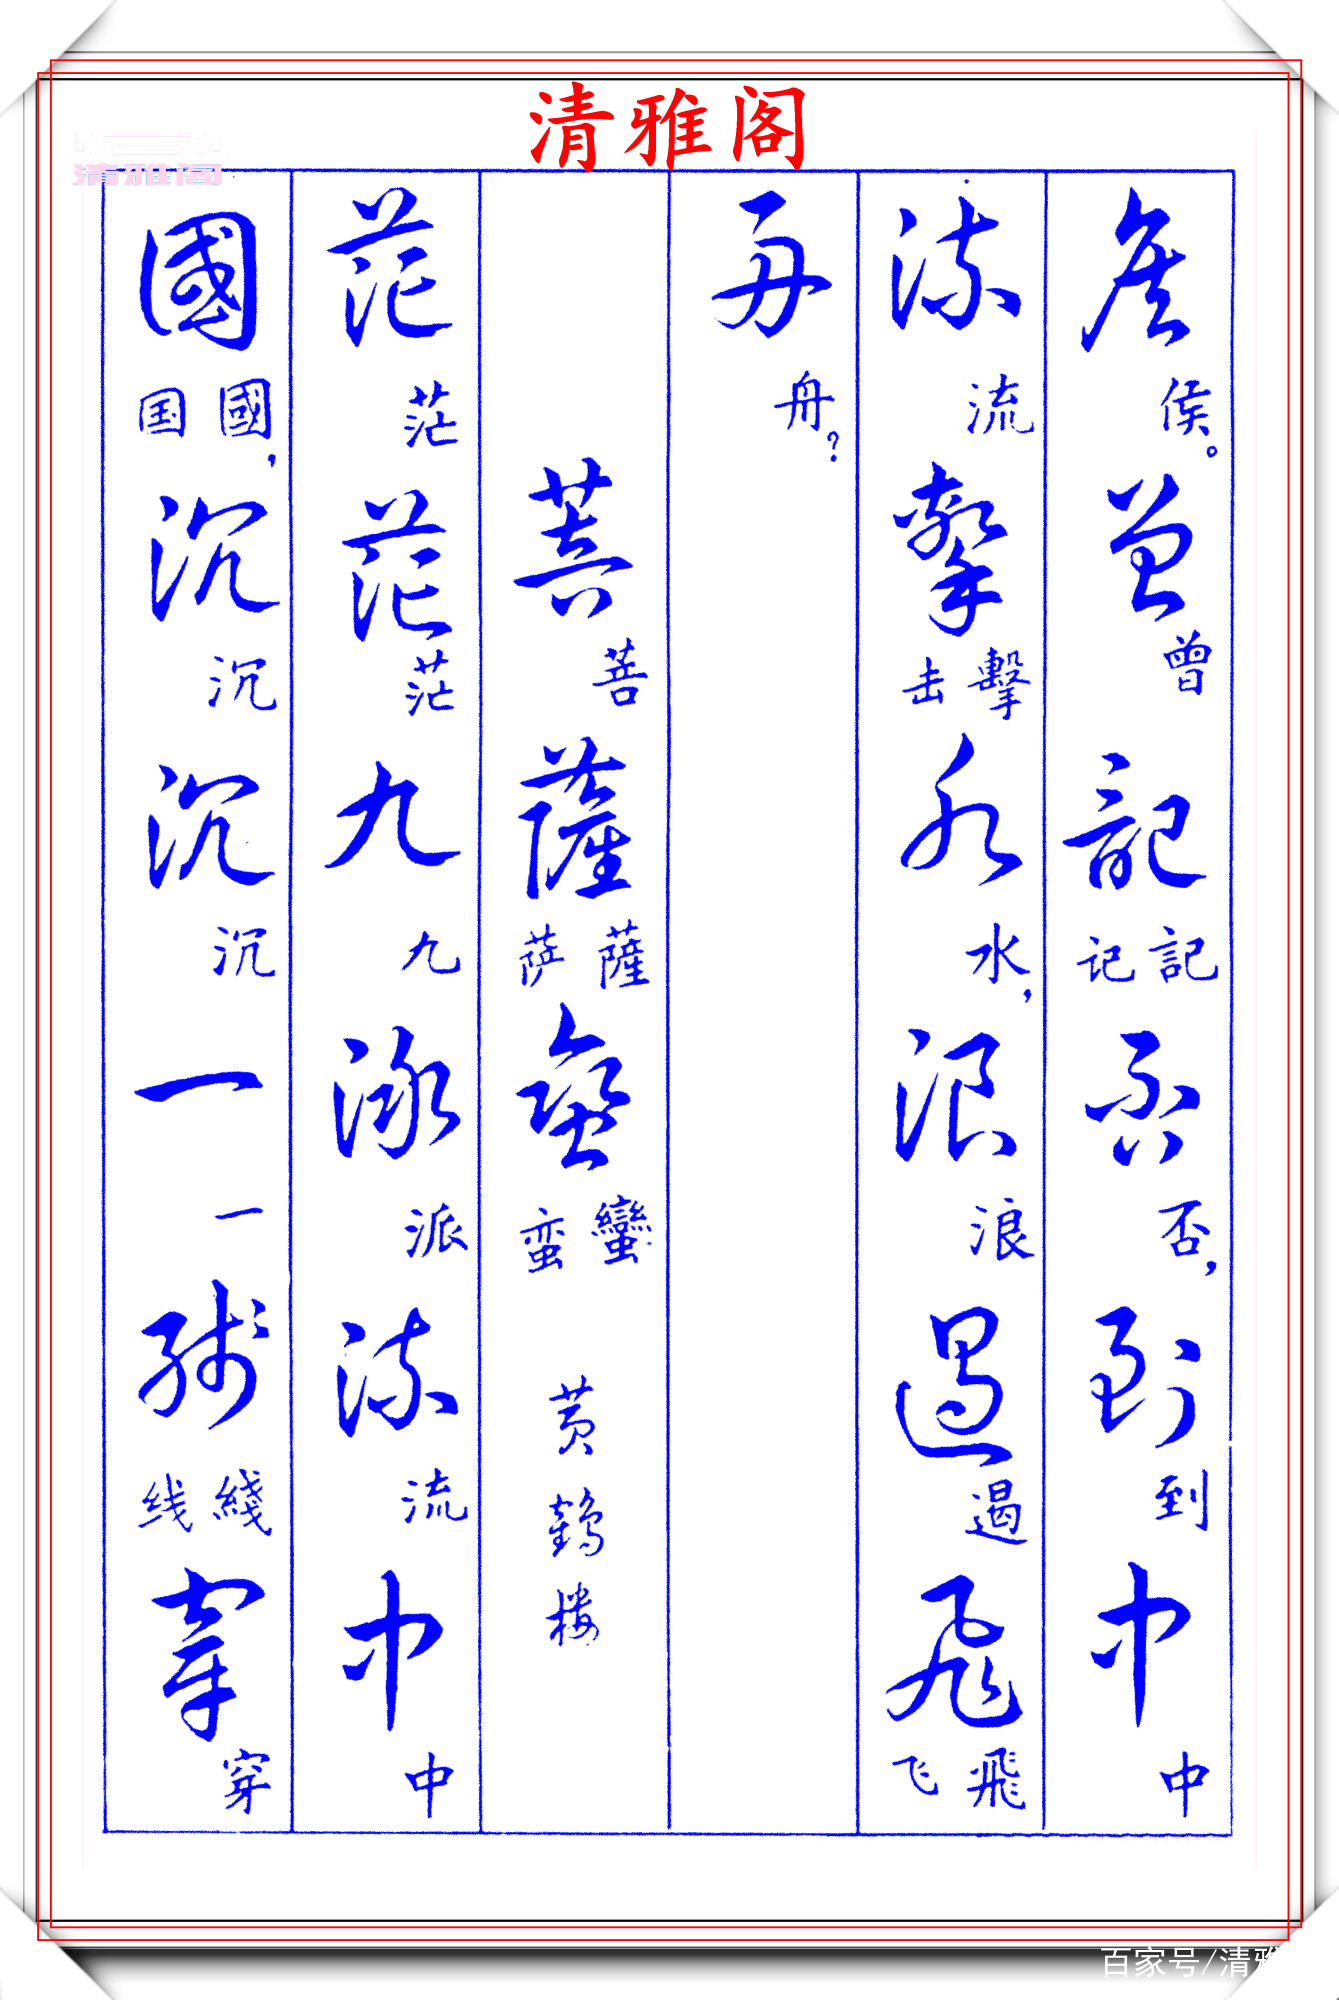 清雅阁
清雅阁
侯侯。曾曾記记記否否，到到中中
流流擊击擊水水，浪浪遏遏飛飞飛
舟舟？
菩菩薩萨薩蠻蛮蠻 黄鹤楼
茫茫茫茫九九派派流流中中
國国國，沉沉沉沉一一綫线綫穿穿
百家号/清雅